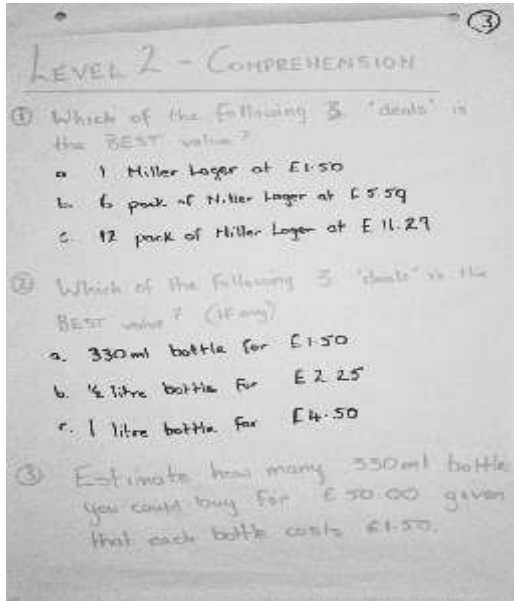 3
LEVEL 2 - COMPREHENSION
① Which of the following 3 'deals' is
the BEST value?
a. 1 Miller Lager at £1.50
b. 6 pack of Miller Lager at £5.59
c. 12 pack of Miller Lager at £11.29
② Which of the following 3 'deals' is the
BEST value? (if any)
a. 330ml bottle for £1.50
b. ½ litre bottle for £2.25
c. 1 litre bottle for £4.50
③ Estimate how many 330ml bottle
you could buy for £50.00 given
that each bottle costs £1.50.